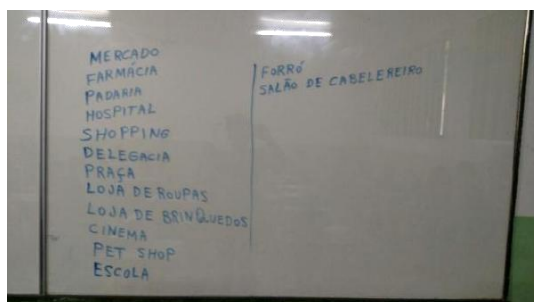 MERCADO
FARMÁCIA
PADARIA
HOSPITAL
SHOPPING
DELEGACIA
PRAÇA
LOJA DE ROUPAS
LOJA DE BRINQUEDOS
CINEMA
PET SHOP
ESCOLA
FORRÓ
SALÃO DE CABELEREIRO